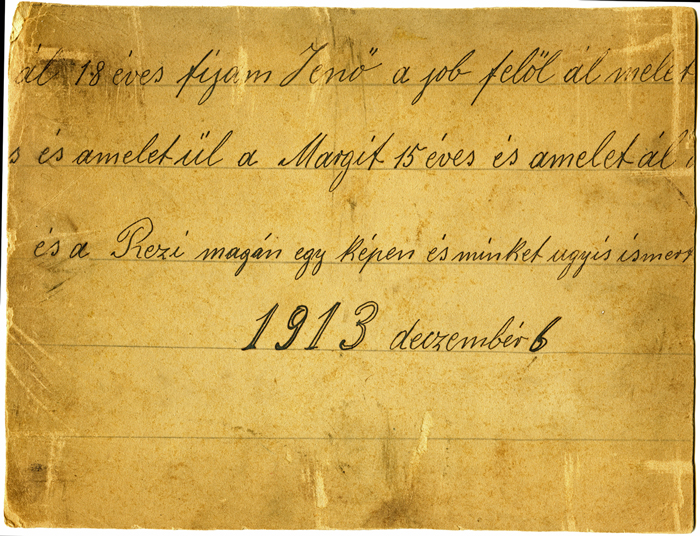 ál 18 éves fijam Jenő a job felől ál melet
s és amelet ül a Margit 15 éves és amelet ál
és a Rezi magán egy képen és minket ugyis ismer
1913 deczembér 6